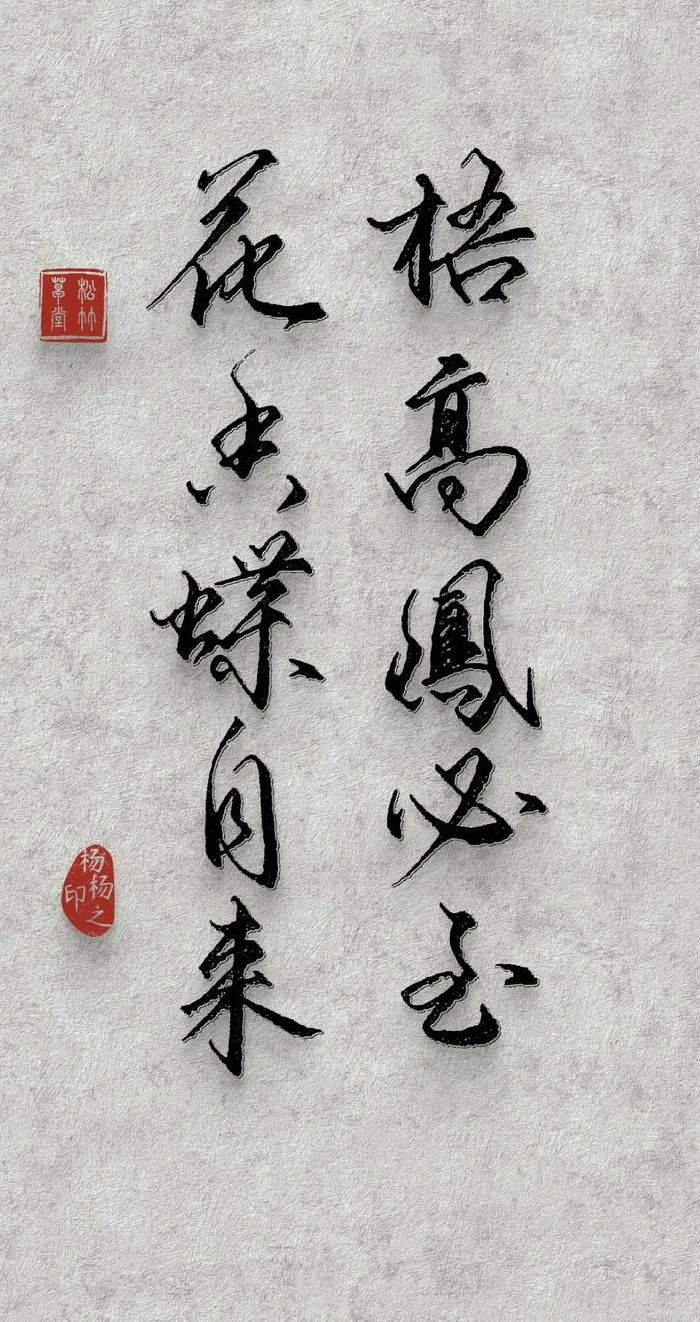 梧高鳳必至
花香蝶自来
松竹草堂
杨杨之印